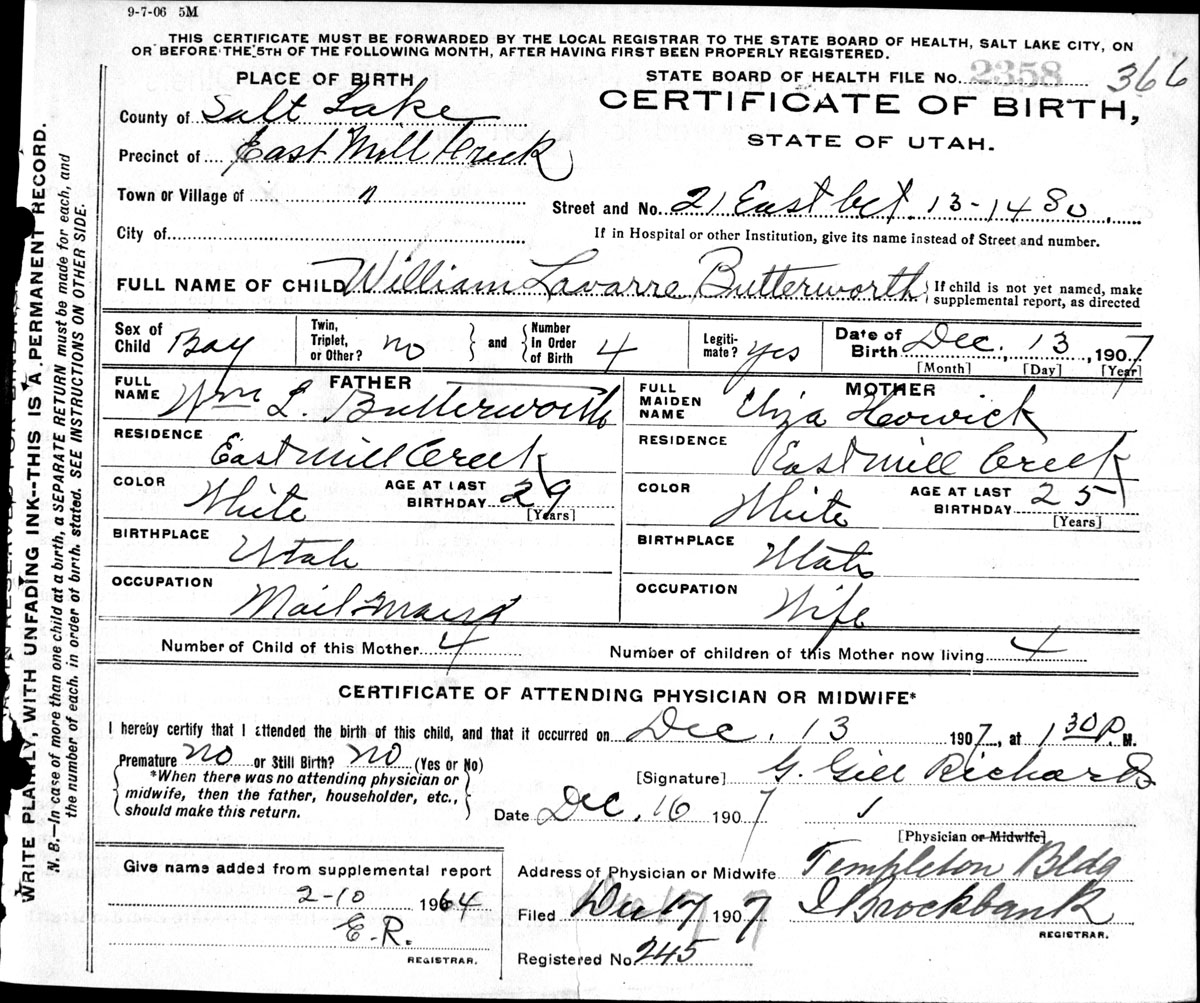 9-7-06 5M
THIS CERTIFICATE MUST BE FORWARDED BY THE LOCAL REGISTRAR TO THE STATE BOARD OF HEALTH, SALT LAKE CITY, ON
OR BEFORE THE 5TH OF THE FOLLOWING MONTH, AFTER HAVING FIRST BEEN PROPERLY REGISTERED.
PLACE OF BIRTH
STATE BOARD OF HEALTH FILE No. 2358 366
County of Salt Lake
CERTIFICATE OF BIRTH,
STATE OF UTAH.
Precinct of East Mill Creek
Town or Village of "
Street and No. 21 East bet. 13-14 So.
City of
If in Hospital or other Institution, give its name instead of Street and number.
FULL NAME OF CHILD William Lavarre Butterworth
{If child is not yet named, make
supplemental report, as directed
Sex of Child Boy
Twin, Triplet, or Other? no
and Number In Order of Birth 4
Legiti-mate? yes
Date of Birth Dec. 13, 1907
[Month] [Day] [Year]
FATHER
FULL NAME Wm L. Butterworth
RESIDENCE East Mill Creek
COLOR White
AGE AT LAST BIRTHDAY 29
[Years]
BIRTHPLACE Utah
OCCUPATION Mail
MOTHER
FULL MAIDEN NAME Eliza Howick
RESIDENCE East Mill Creek
COLOR White
AGE AT LAST BIRTHDAY 25
[Years]
BIRTHPLACE Utah
OCCUPATION Wife
Number of Child of this Mother 4
Number of children of this Mother now living 4
CERTIFICATE OF ATTENDING PHYSICIAN OR MIDWIFE*
I hereby certify that I attended the birth of this child, and that it occurred on Dec. 13 1907, at 1 30 P. M.
Premature no or Still Birth? no (Yes or No)
{*When there was no attending physician or
midwife, then the father, householder, etc.,
should make this return.}
[Signature] G. Gill Richards
Date Dec. 16 1907
[Physician or Midwife]
Give name added from supplemental report
2-10 1964
E.R.
REGISTRAR.
Address of Physician or Midwife Templeton Bldg
Filed Dec 17 1907 I Brockbank
REGISTRAR.
Registered No. 245
WRITE PLAINLY, WITH UNFADING INK--THIS IS A PERMANENT RECORD.
N. B.—In case of more than one child at a birth, a SEPARATE RETURN must be made for each, and
the number of each, in order of birth stated. SEE INSTRUCTIONS ON OTHER SIDE.